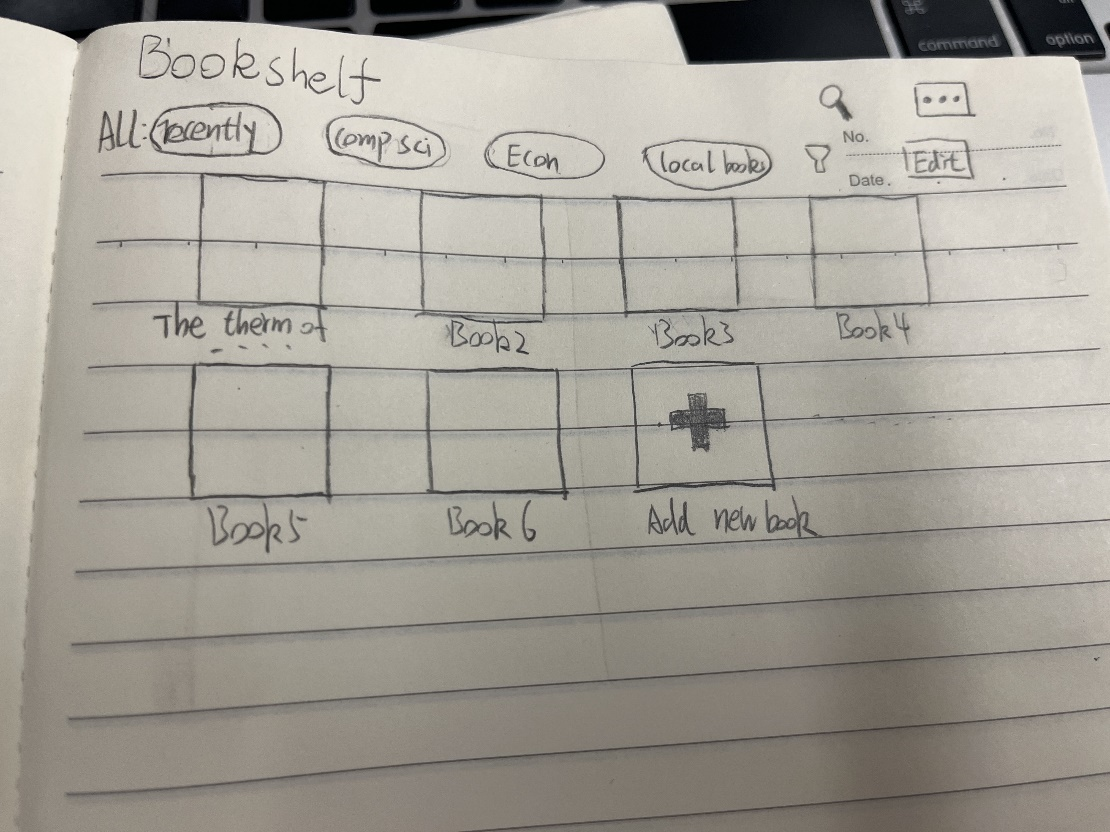 command
option
Bookshelf
...
No.
ALL: recently comp sci Econ local books Edit
Date.
The therm of
....
Book2 Book3 Book4
Book5 Book 6 Add new book